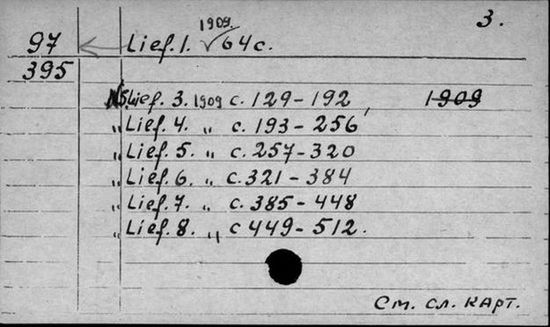 3.
1909.
97 Lief. 1. √64 с.
395
Lief. 3. 1909 с. 129-192, 1909
„ Lief. 4. „ с. 193-256
„ Lief. 5. „ с. 257-320
„ Lief. 6. „ с. 321-384
„ Lief. 7. „ с. 385-448
„ Lief. 8. „ с 449-512.
См. сл. карт.